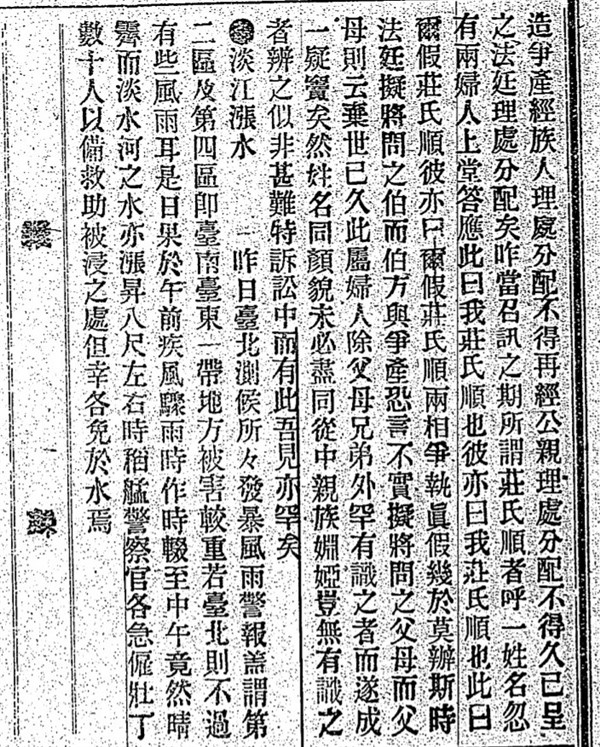 造爭產經族人理處分配不得再經公親理處分配不得久已呈
之法廷理處分配矣昨當召訊之期所謂莊氏順者呼一姓名忽
有兩婦人上堂答應此曰我莊氏順也彼亦曰我莊氏順也此曰
爾假莊氏順彼亦曰爾假莊氏順兩相爭執眞假幾於莫辦斯時
法廷擬將問之伯而伯方與爭產恐言不實擬將問之父母而父
母則云棄世已久此屬婦人除父母兄弟外罕有識之者而遂成
一疑竇矣然姓名同顏貌未必盡同從中親族婣婭豈無有識之
者辦之似非甚難特訴訟中而有此吾見亦罕矣
淡江漲水 昨日臺北測候所々發暴風雨警報盖謂第
二區及第四區即臺南臺東一帶地方被害較重若臺北則不過
有些風雨耳是日果於午前疾風驟雨時作時輟至中午竟然晴
霽而淡水河之水亦漲昇八尺左右時稻艋警察官各急僱壯丁
數十人以備救助被浸之處但幸各免於水焉